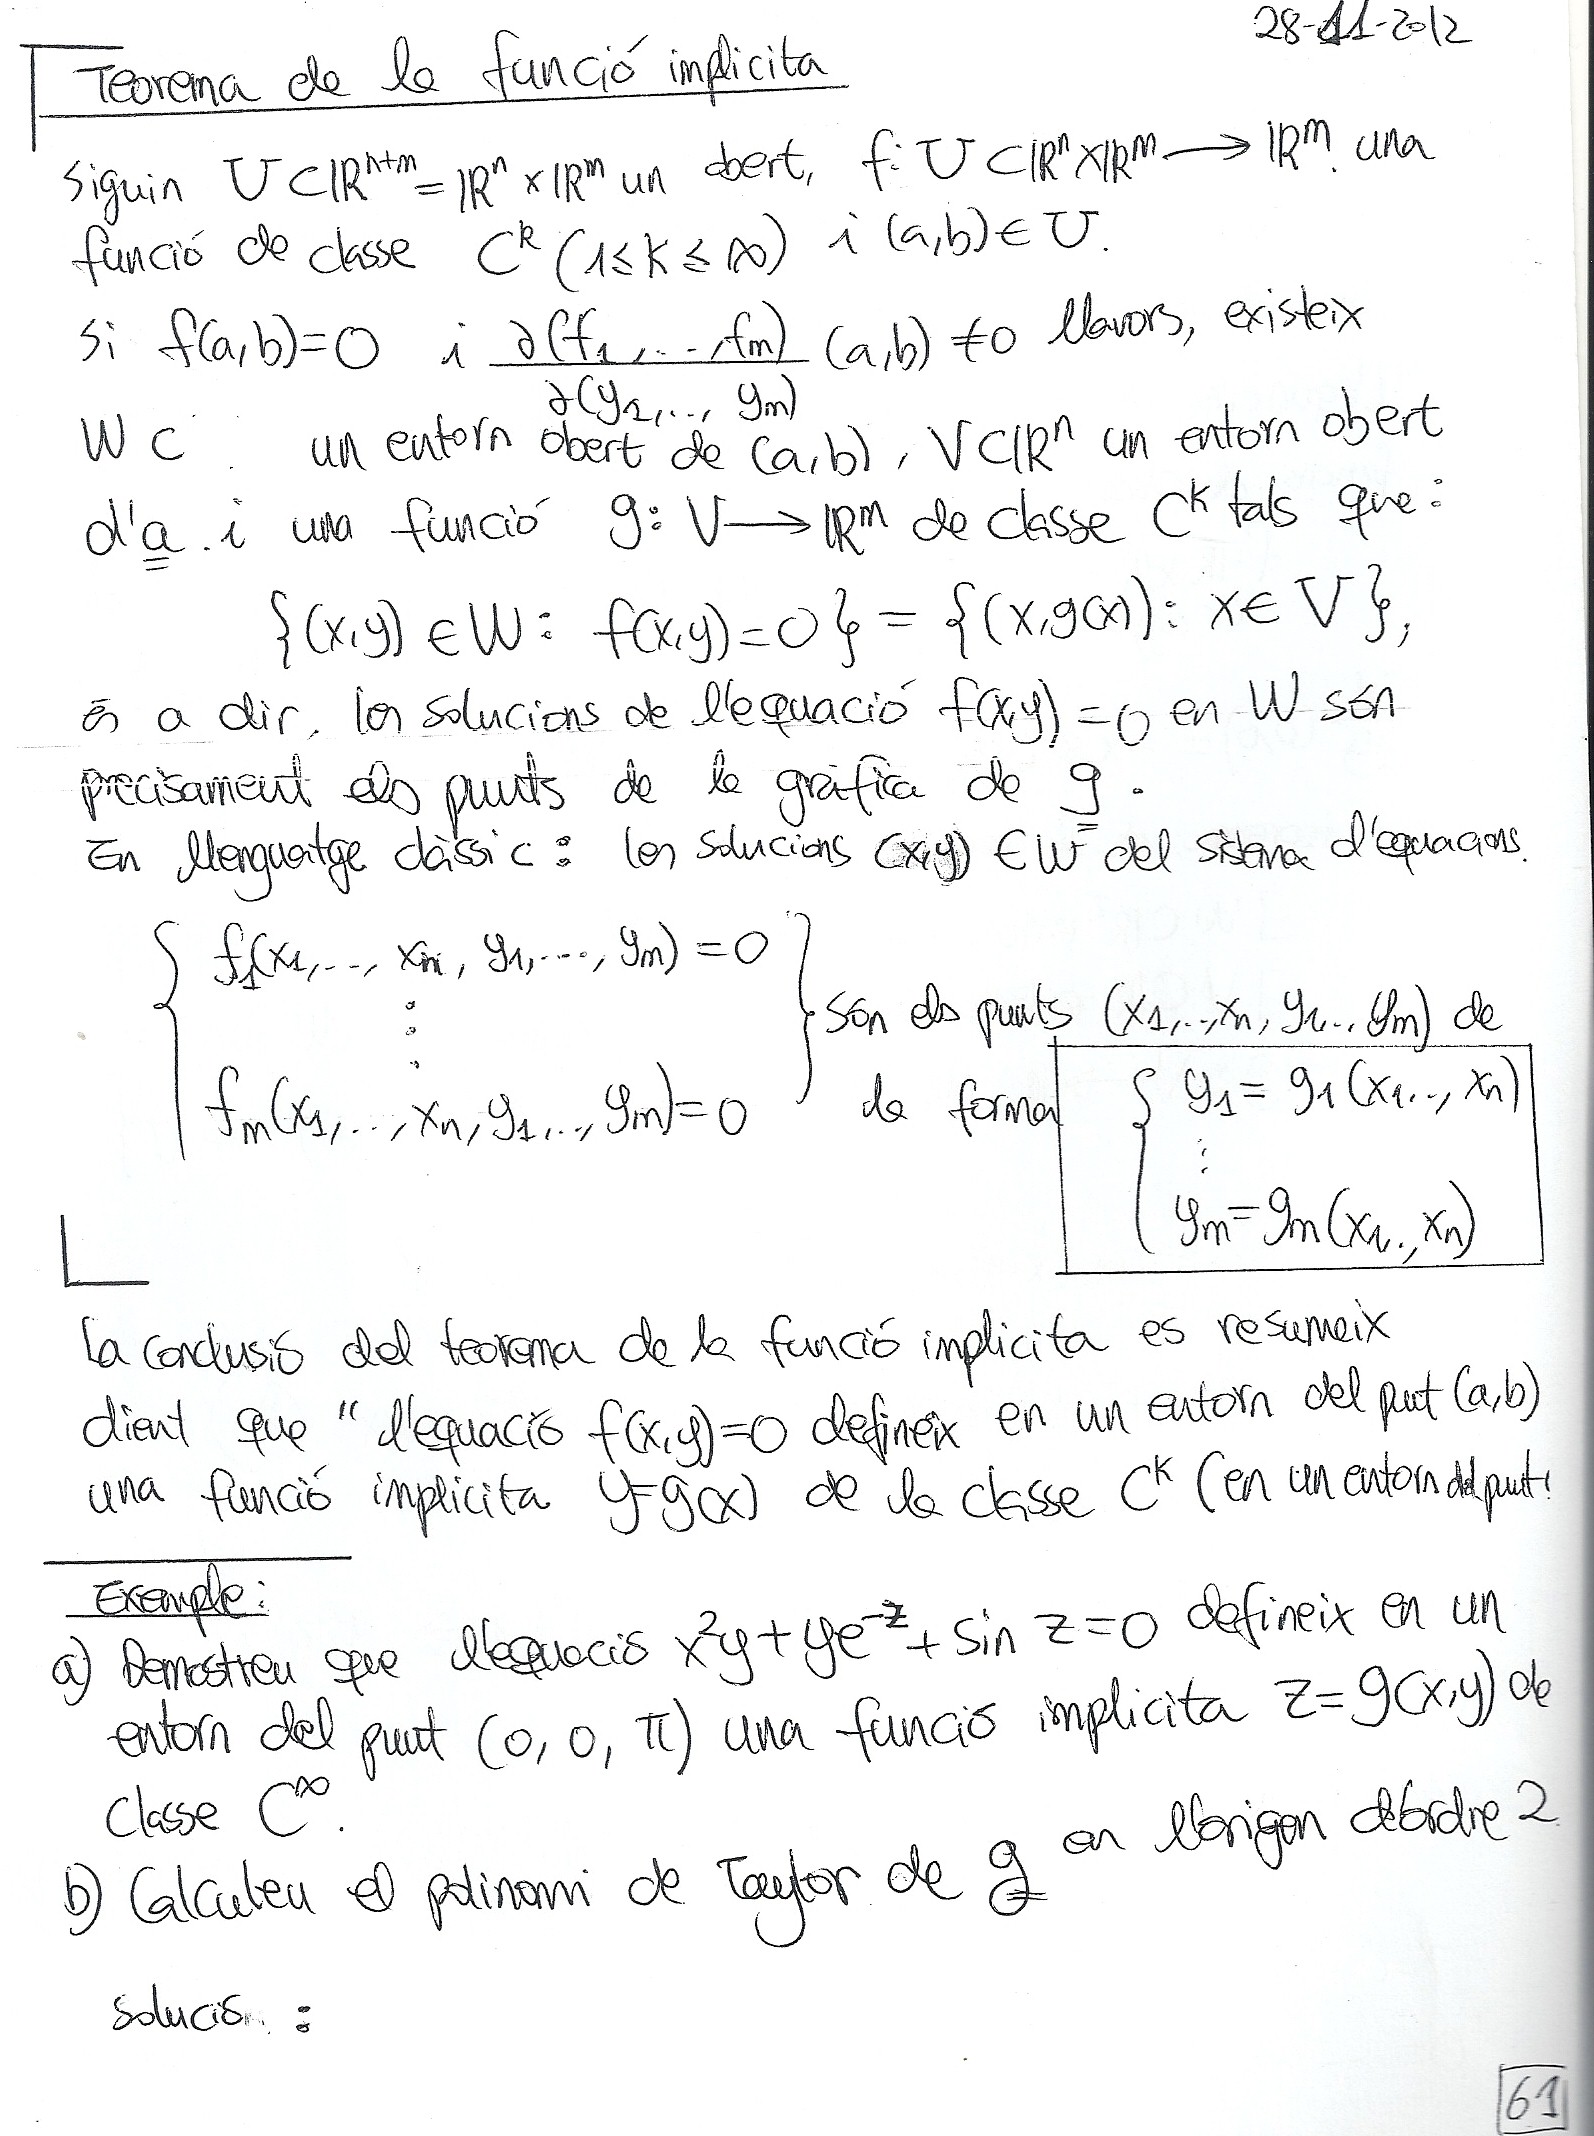 28-11-2012
Teorema de la funció implicita
Siguin U ⊂ ℝⁿ⁺ᵐ = ℝⁿ × ℝᵐ un obert, f: U ⊂ ℝⁿ × ℝᵐ → ℝᵐ una
funció de classe Cᵏ (1 ≤ k ≤ ∞) i (a,b) ∈ U.
Si f(a,b)=0 i ∂(f₁,...,fₘ)/∂(y₁,..., yₘ) (a,b) ≠ 0 llavors, existeix
W ⊂ un entorn obert de (a,b), V ⊂ ℝⁿ un entorn obert
d'a i una funció g: V → ℝᵐ de classe Cᵏ tals que:
{(x,y) ∈ W: f(x,y)=0} = {(x,g(x)): x ∈ V},
és a dir, les solucions de l'equació f(x,y)=0 en W són
precisament els punts de la gràfica de g.
En llenguatge clàssic: les solucions (x,y) ∈ W del sistema d'equacions.
{ f₁(x₁,..., xₙ, y₁,..., yₘ) = 0
⋮
fₘ(x₁,..., xₙ, y₁,..., yₘ) = 0 }
són els punts (x₁,..,xₙ, y₁.., yₘ) de
la forma
{ y₁ = g₁(x₁.., xₙ)
⋮
yₘ = gₘ(x₁.., xₙ)
La conclusió del teorema de la funció implicita es resumeix
dient que "l'equació f(x,y)=0 defineix en un entorn del punt (a,b)
una funció implicita y=g(x) de la classe Cᵏ (en un entorn del punt
Exemple:
a) Demostreu que l'equació x²y + ye⁻ᶻ + sin z = 0 defineix en un
entorn del punt (0, 0, π) una funció implicita z = g(x,y) de
classe C^∞.
b) Calculeu el polinomi de Taylor de g en l'origen d'ordre 2
Solució:
61